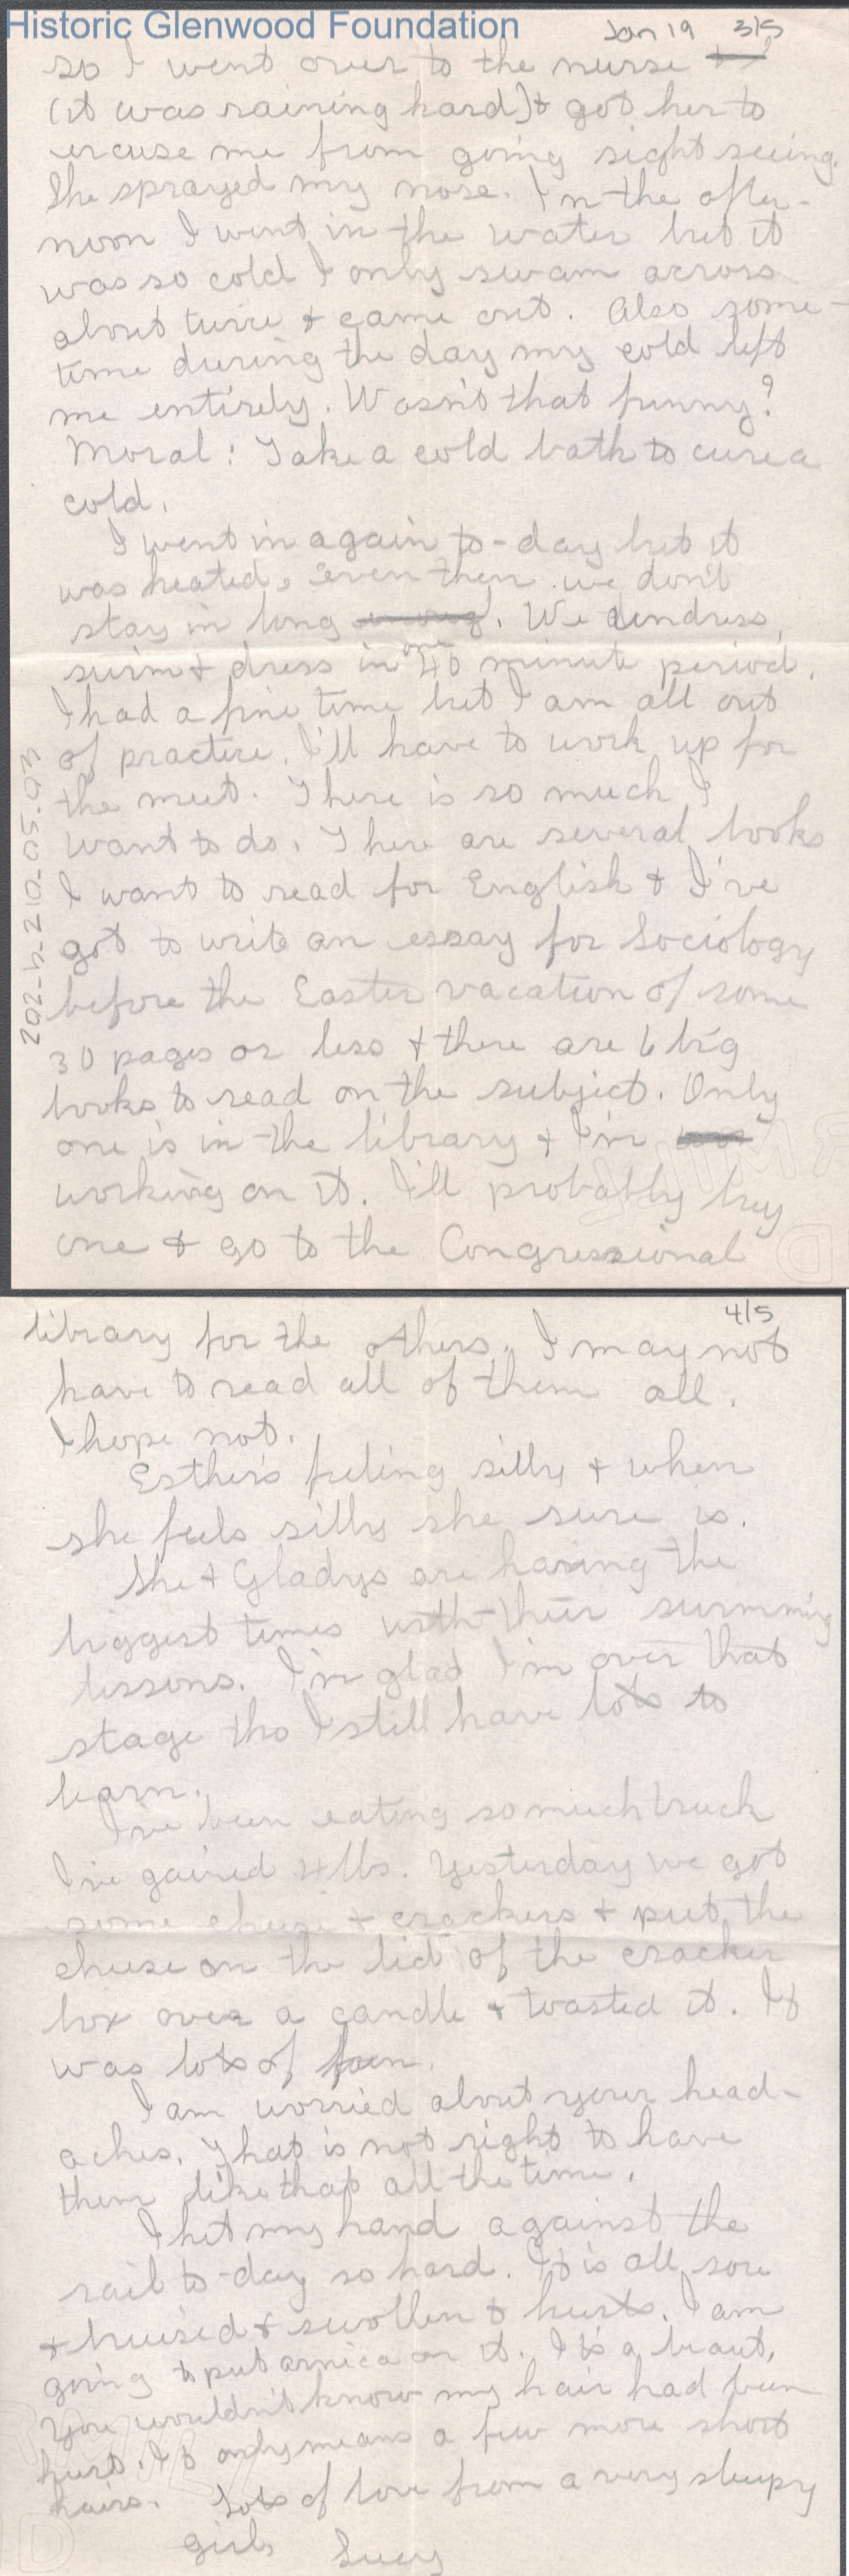 Historic Glenwood Foundation
Jan 19 3/5
so I went over to the nurse
(it was raining hard) & got her to
excuse me from going sight seeing.
She sprayed my nose. In the after-
noon I went in the water but it
was so cold I only swam across
about twice & came out. Also some-
time during the day my cold left
me entirely. Wasn't that funny?
Moral: Take a cold bath to cure a
cold.
I went in again to-day but it
was heated, even then we don't
stay in long. We undress,
swim & dress in one 40 minute period.
I had a fine time but I am all out
of practice. I'll have to work up for
the meet. There is so much I
want to do. There are several books
I want to read for English & I've
got to write an essay for Sociology
before the Easter vacation of some
30 pages or less & there are 6 big
books to read on the subject. Only
one is in the library & I'm
working on it. I'll probably buy
one & go to the Congressional
202-h-210.05.03
4/5
library for the others. I may not
have to read all of them all.
I hope not.
Esther's feeling silly & when
she feels silly she sure is.
She & Gladys are having the
biggest times with their swimming
lessons. I'm glad I'm over that
stage tho I still have lots to
learn.
I've been eating so much truck
I've gained 4 lbs. Yesterday we got
some cheese & crackers & put the
cheese on the lid of the cracker
box over a candle & toasted it. It
was lots of fun.
I am worried about your head-
aches. That is not right to have
them like that all the time.
I hit my hand against the
rail to-day so hard. It is all sore
& bruised & swollen & hurts. I am
going to put arnica on it. It's a beaut.
You wouldn't know my hair had been
hurt. It only means a few more short
hairs. Lots of love from a very sleepy
girl, Lucy